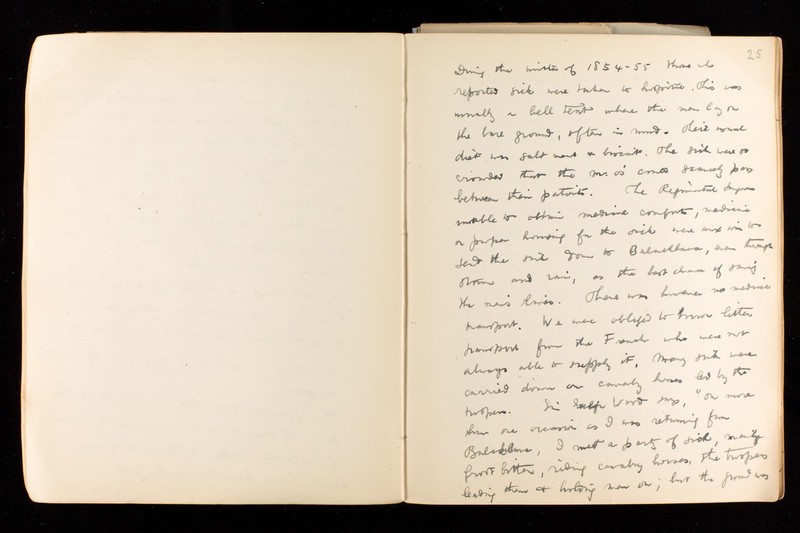 25
During the winter of 1854-55 those who
reported sick were taken to hospital. This was
usually a bell tent where the men lay on
the bare ground, often in mud. Their usual
diet was salt meat & biscuit. The sick were so
crowded that the M.O's could scarcely pass
between their patients. The Regimental Surgeons
unable to obtain medicine comforts, medicine
or proper housing for the sick were anxious to
send the sick down to Balaclava, even through
storm and rain, as the best chance of saving
the men's lives. There was however no medical
transport. We were obliged to borrow litter
transport from the French who were not
always able to supply it. Many sick were
carried down on cavalry horses led by the
troopers. Sir Evelyn Wood says, "on more
than one occasion as I was returning from
Balaclava, I met a party of sick, mainly
frost bitten, riding cavalry horses, the troopers
leading them & holding men on; but the ground was